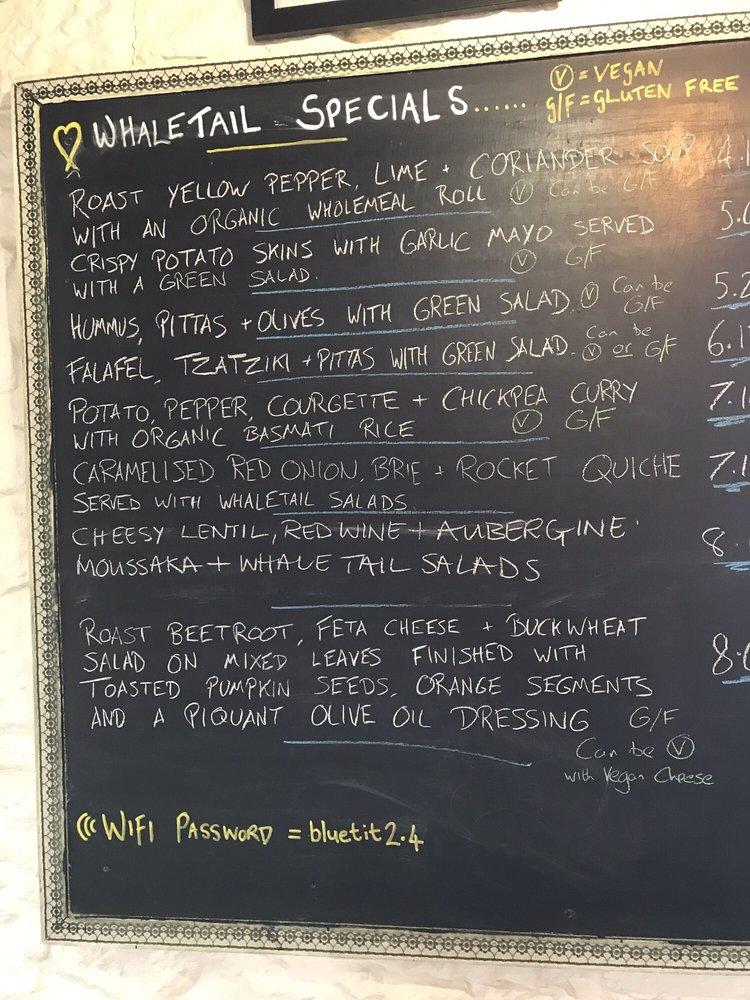 WHALETAIL SPECIALS......
Ⓥ = VEGAN
g/F = GLUTEN FREE
ROAST YELLOW PEPPER, LIME + CORIANDER SOUP
WITH AN ORGANIC WHOLEMEAL ROLL Ⓥ Can be G/F
CRISPY POTATO SKINS WITH GARLIC MAYO SERVED 5.
WITH A GREEN SALAD. Ⓥ G/F
HUMMUS, PITTAS + OLIVES WITH GREEN SALAD. Ⓥ Can be G/F 5.2
FALAFEL, TZATZIKI + PITTAS WITH GREEN SALAD. Can be Ⓥ or G/F 6.1
POTATO, PEPPER, COURGETTE + CHICKPEA CURRY 7.1
WITH ORGANIC BASMATI RICE Ⓥ G/F
CARAMELISED RED ONION, BRIE + ROCKET QUICHE 7.1
SERVED WITH WHALETAIL SALADS.
CHEESY LENTIL, RED WINE + AUBERGINE 8.
MOUSSAKA + WHALE TAIL SALADS
ROAST BEETROOT, FETA CHEESE + BUCKWHEAT
SALAD ON MIXED LEAVES FINISHED WITH 8.
TOASTED PUMPKIN SEEDS, ORANGE SEGMENTS
AND A PIQUANT OLIVE OIL DRESSING G/F
Can be Ⓥ
with Vegan Cheese
WIFI PASSWORD = bluetit2.4